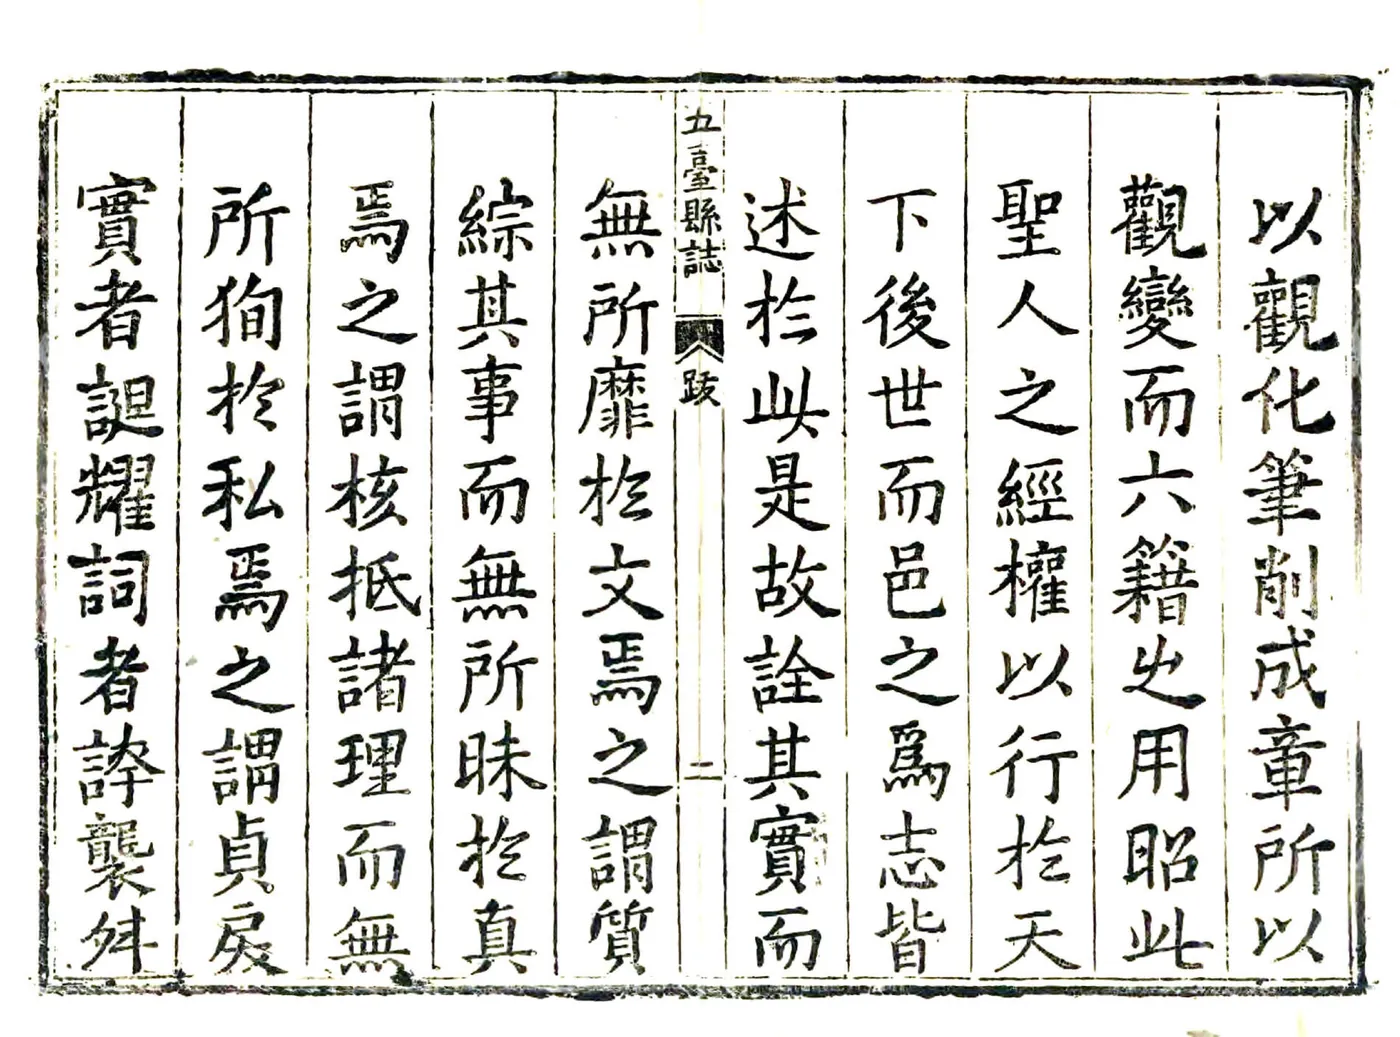 以觀化筆削成章所以
觀變而六籍之用昭此
聖人之經權以行於天
下後世而邑之爲志皆
述於此是故詮其實而
五臺縣誌 跋 二
無所靡於文焉之謂質
綜其事而無所昧於真
焉之謂核抵諸理而無
所狥於私焉之謂貞戾
實者誕耀詞者誇襲舛